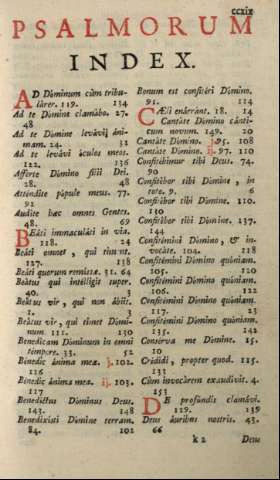 ccxix
PSALMORUM
INDEX.
AD Dóminum cùm tribu-
lárer. 119. 134
Ad te Dómine clamábo. 27.
48
Ad te Dómine levávi áni-
mam. 24. 31
Ad te levávi óculos meos.
122. 136
Afferte Dómino fílii Dei.
28. 48
Atténdite pópule meus. 77.
92
Audíte hæc omnes Gentes.
48. 69
BEáti immaculáti in via.
118. 24
Beáti omnes, qui timent.
127. 138
Beáti quorum remíssæ. 31. 64
Beátus qui intélligit super.
40. 3
Beátus vir, qui non ábiit.
1. 3
Beátus vir, qui timet Dómi-
num. 111. 130
Benedícam Dóminum in omni
témpore. 33. 52
Bénedic ánima mea. j. 102.
116
Bénedic ánima mea. ij. 103.
117
Benedíctus Dóminus Deus.
143. 148
Benedixísti Dómine terram.
84. 102
Bonum est confitéri Dómino.
91. 114
CÆli enárrant. 18. 14
Cantáte Dómino cánti-
cum novum. 149. 20
Cantáte Dómino. j. 95. 108
Cantáte Dómino. ij. 97. 110
Confitébimur tibi Deus. 74.
90
Confitébor tibi Dómine, in
toto. 9. 6
Confitébor tibi Dómine. 110.
130
Confitébor tibi Dómine. 137.
144
Confitémini Dómino, & in-
vocáte. 104. 118
Confitémini Dómino quóniam.
105. 120
Confitémini Dómino quóniam.
106. 122
Confitémini Dómino quóniam.
117. 23
Confitémini Dómino quóniam.
135. 142
Consérva me Dómine. 15.
10
Crédidi, propter quod. 115.
133
Cùm invocárem exaudívit. 4.
153
DE profúndis clamávi.
129. 139
Deus áuribus nostris. 43.
66
k 2 Deus